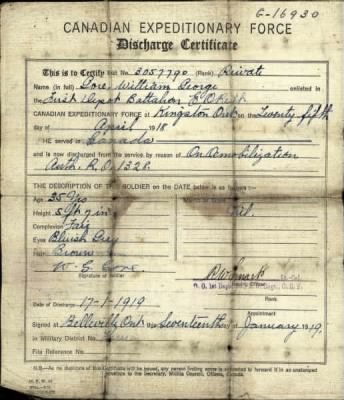 G-16930
CANADIAN EXPEDITIONARY FORCE
Discharge Certificate
This is to Certify that No. 3057790 (Rank) Private
Name (in full) Gore, William George enlisted in
the First Depot Battalion E.O. Regt
CANADIAN EXPEDITIONARY FORCE at Kingston Ont on the Twenty fifth
day of April 1918
HE served in Canada
and is now discharged from the service by reason of On Demobilization
Auth. R.O. 1326
THE DESCRIPTION OF THIS SOLDIER on the DATE below is as follows:—
Age 35 yrs Marks or Scars
Height 5 ft 7 in Nil.
Complexion Fair
Eyes Bluish Grey
Hair Brown
W. G. Gore
Signature of Soldier
Issuing Officer
O. C. 1st Depot
Rank
Date of Discharge 17-1-1919
Appointment
Signed at Belleville Ont this Seventeenth day of January 1919.
in Military District No.
File Reference No.
N.B.—As no duplicate of this Certificate will be issued, any person finding same is requested to forward it in an unstamped
envelope to the Secretary, Militia Council, Ottawa, Canada.